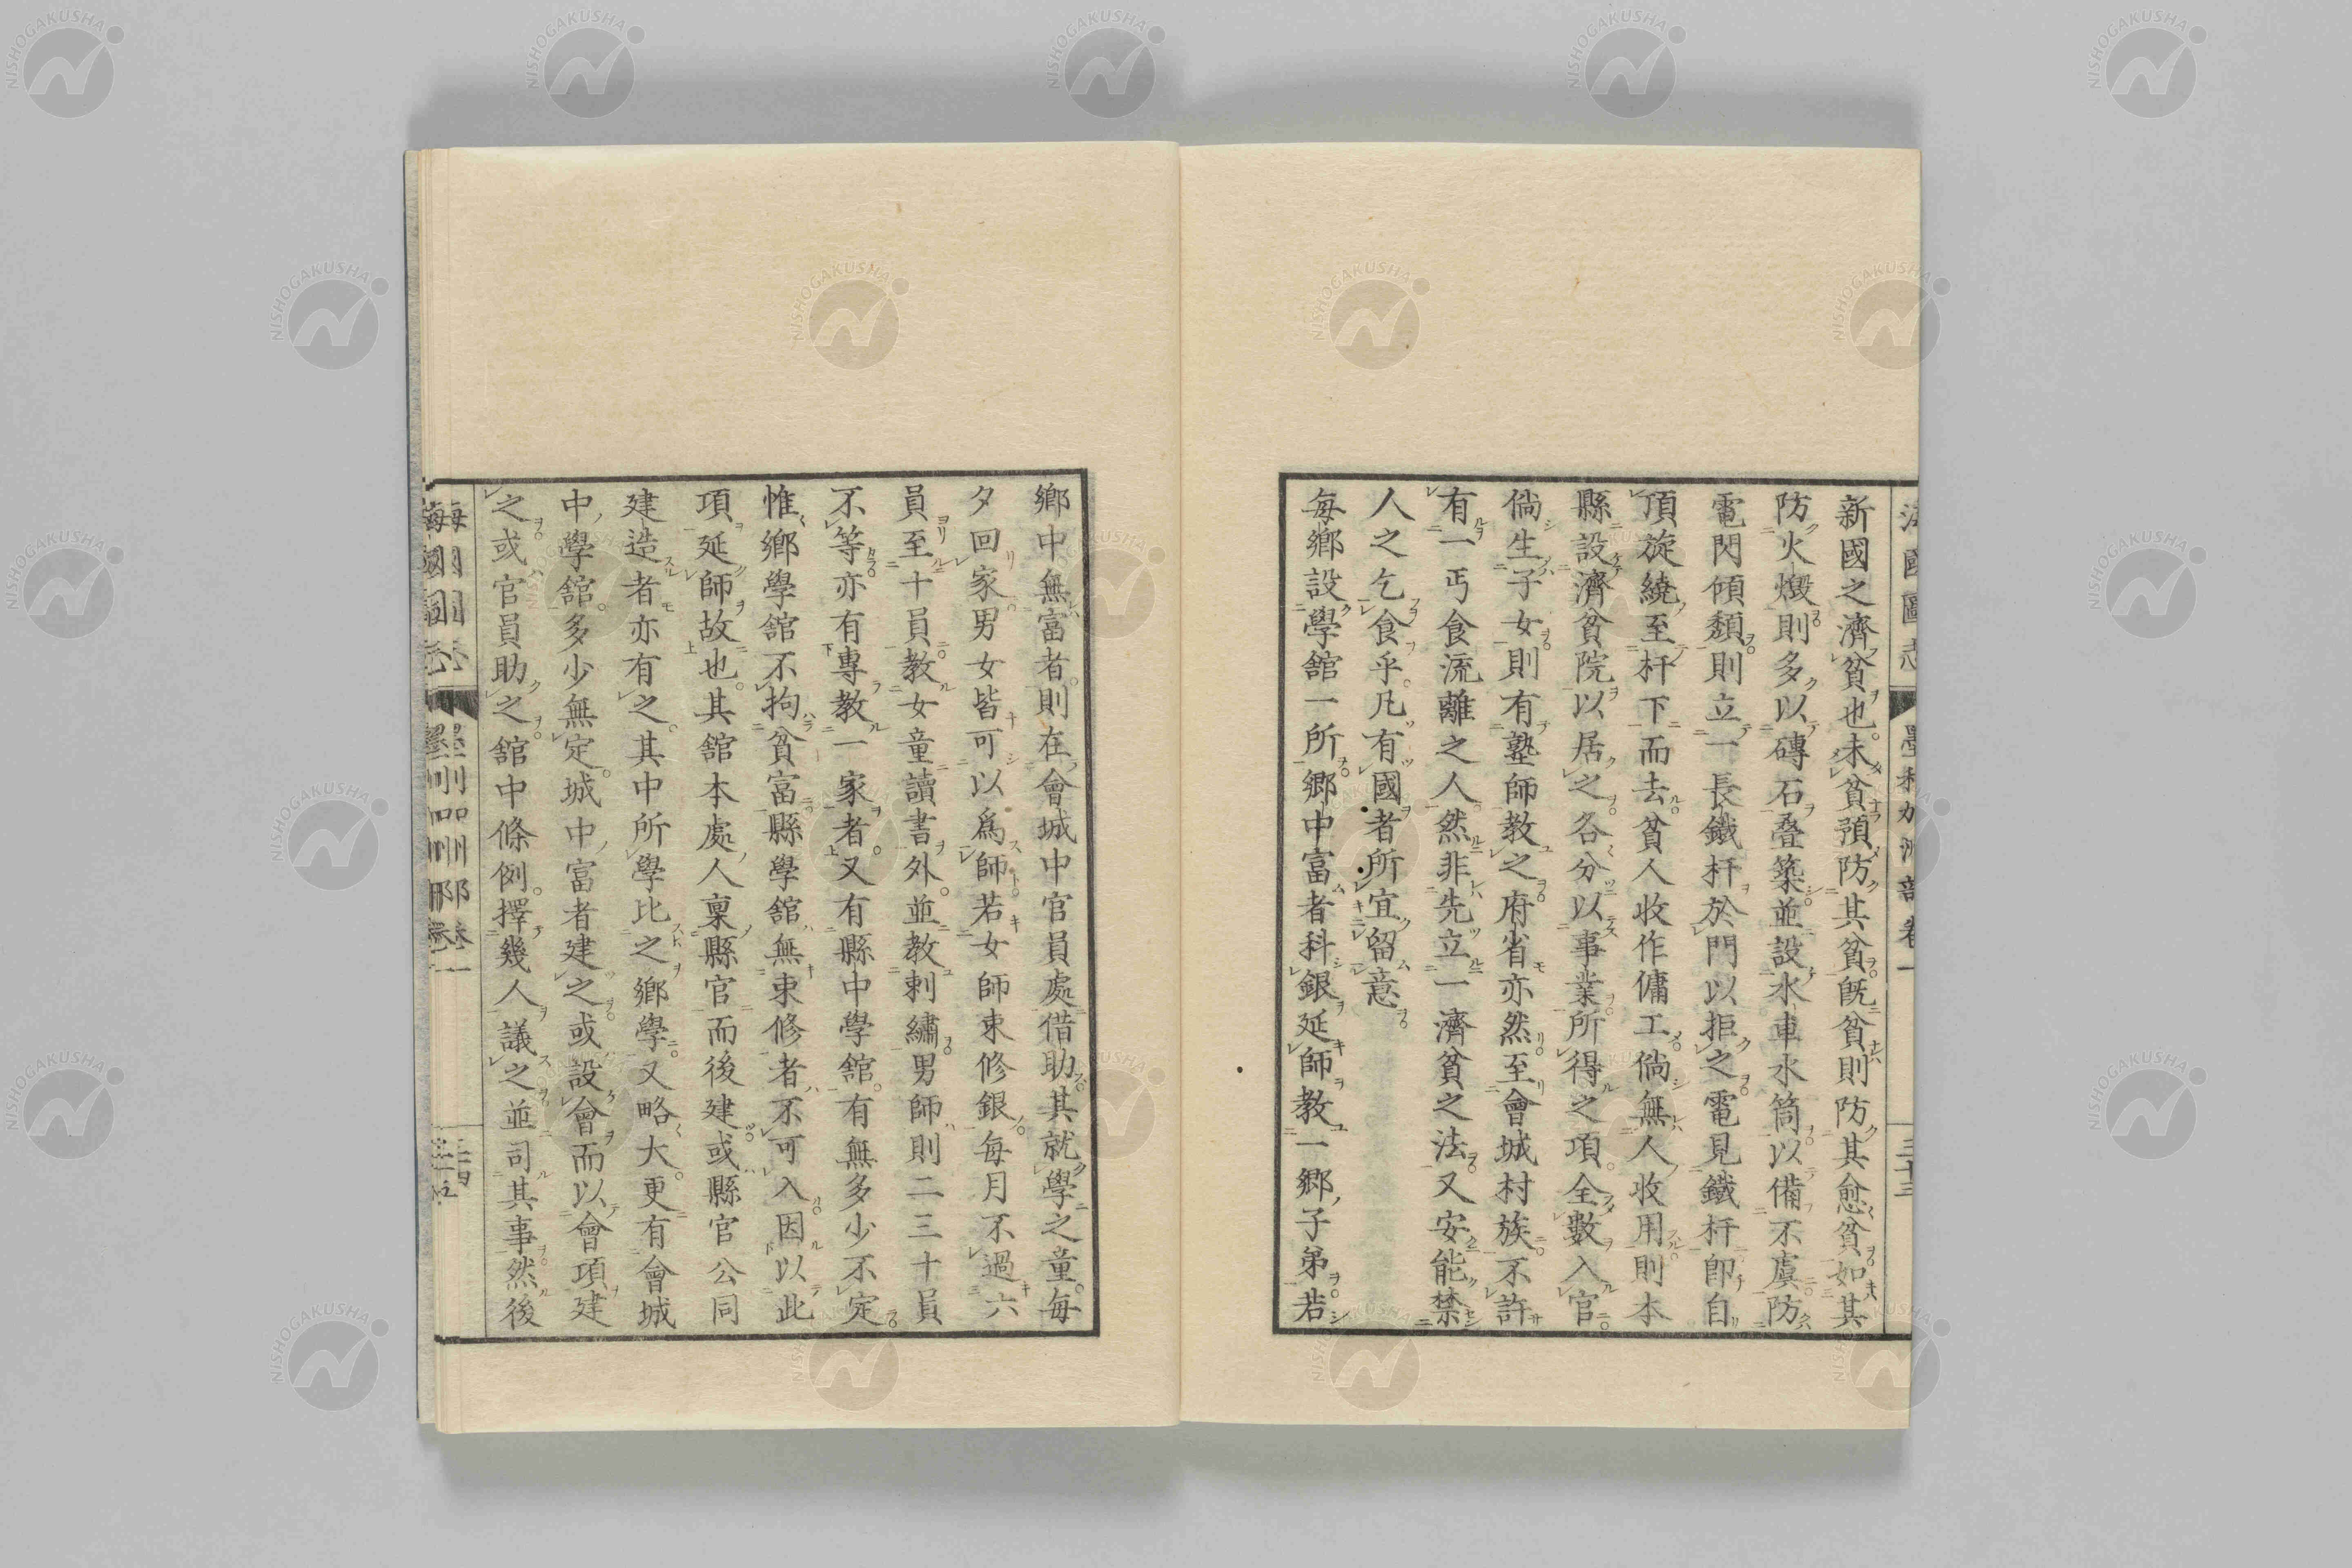 新國之濟貧也。未貧預防其貧。既貧則防其愈貧。如其
防火燬。則多以磚石疊築。並設水車水筒。以備不虞。防
電閃傾頽。則立一長鐵杆於門以拒之。電見鐵杆即自
頂旋繞至杆下而去。貧人收作傭工。倘無人收用。則本
縣設濟貧院以居之。各分以事業。所得之項。全數入官。
倘生子女。則有塾師教之。府省亦然。至會城村族。不許
有一丐食流離之人。然非先立一濟貧之法。又安能禁
人之乞食乎。凡有國者所宜留意。
每鄉設學舘一所。鄉中富者科銀延師教一鄉子弟。若
鄉中無富者。則在會城中官員處借助。其就學之童。每
夕回家。男女皆可以爲師。若女師束修銀。每月不過六
員至十員。教女童讀書外。並教刺繡。男師則二三十員
不等。亦有專教一家者。又有縣中學舘。有無多少不定。
惟鄉學舘不拘貧富。縣學舘無束修者不可入。因以此
項延師故也。其舘本處人稟縣官而後建。或縣官公同
建造者亦有之。其中所學比之鄉學。又略大。更有會城
中學舘。多少無定。城中富者建之。或設會而以會項建
之。或官員助之。舘中條例。擇幾人議之。並司其事。然後
NISHOGAKUSHA